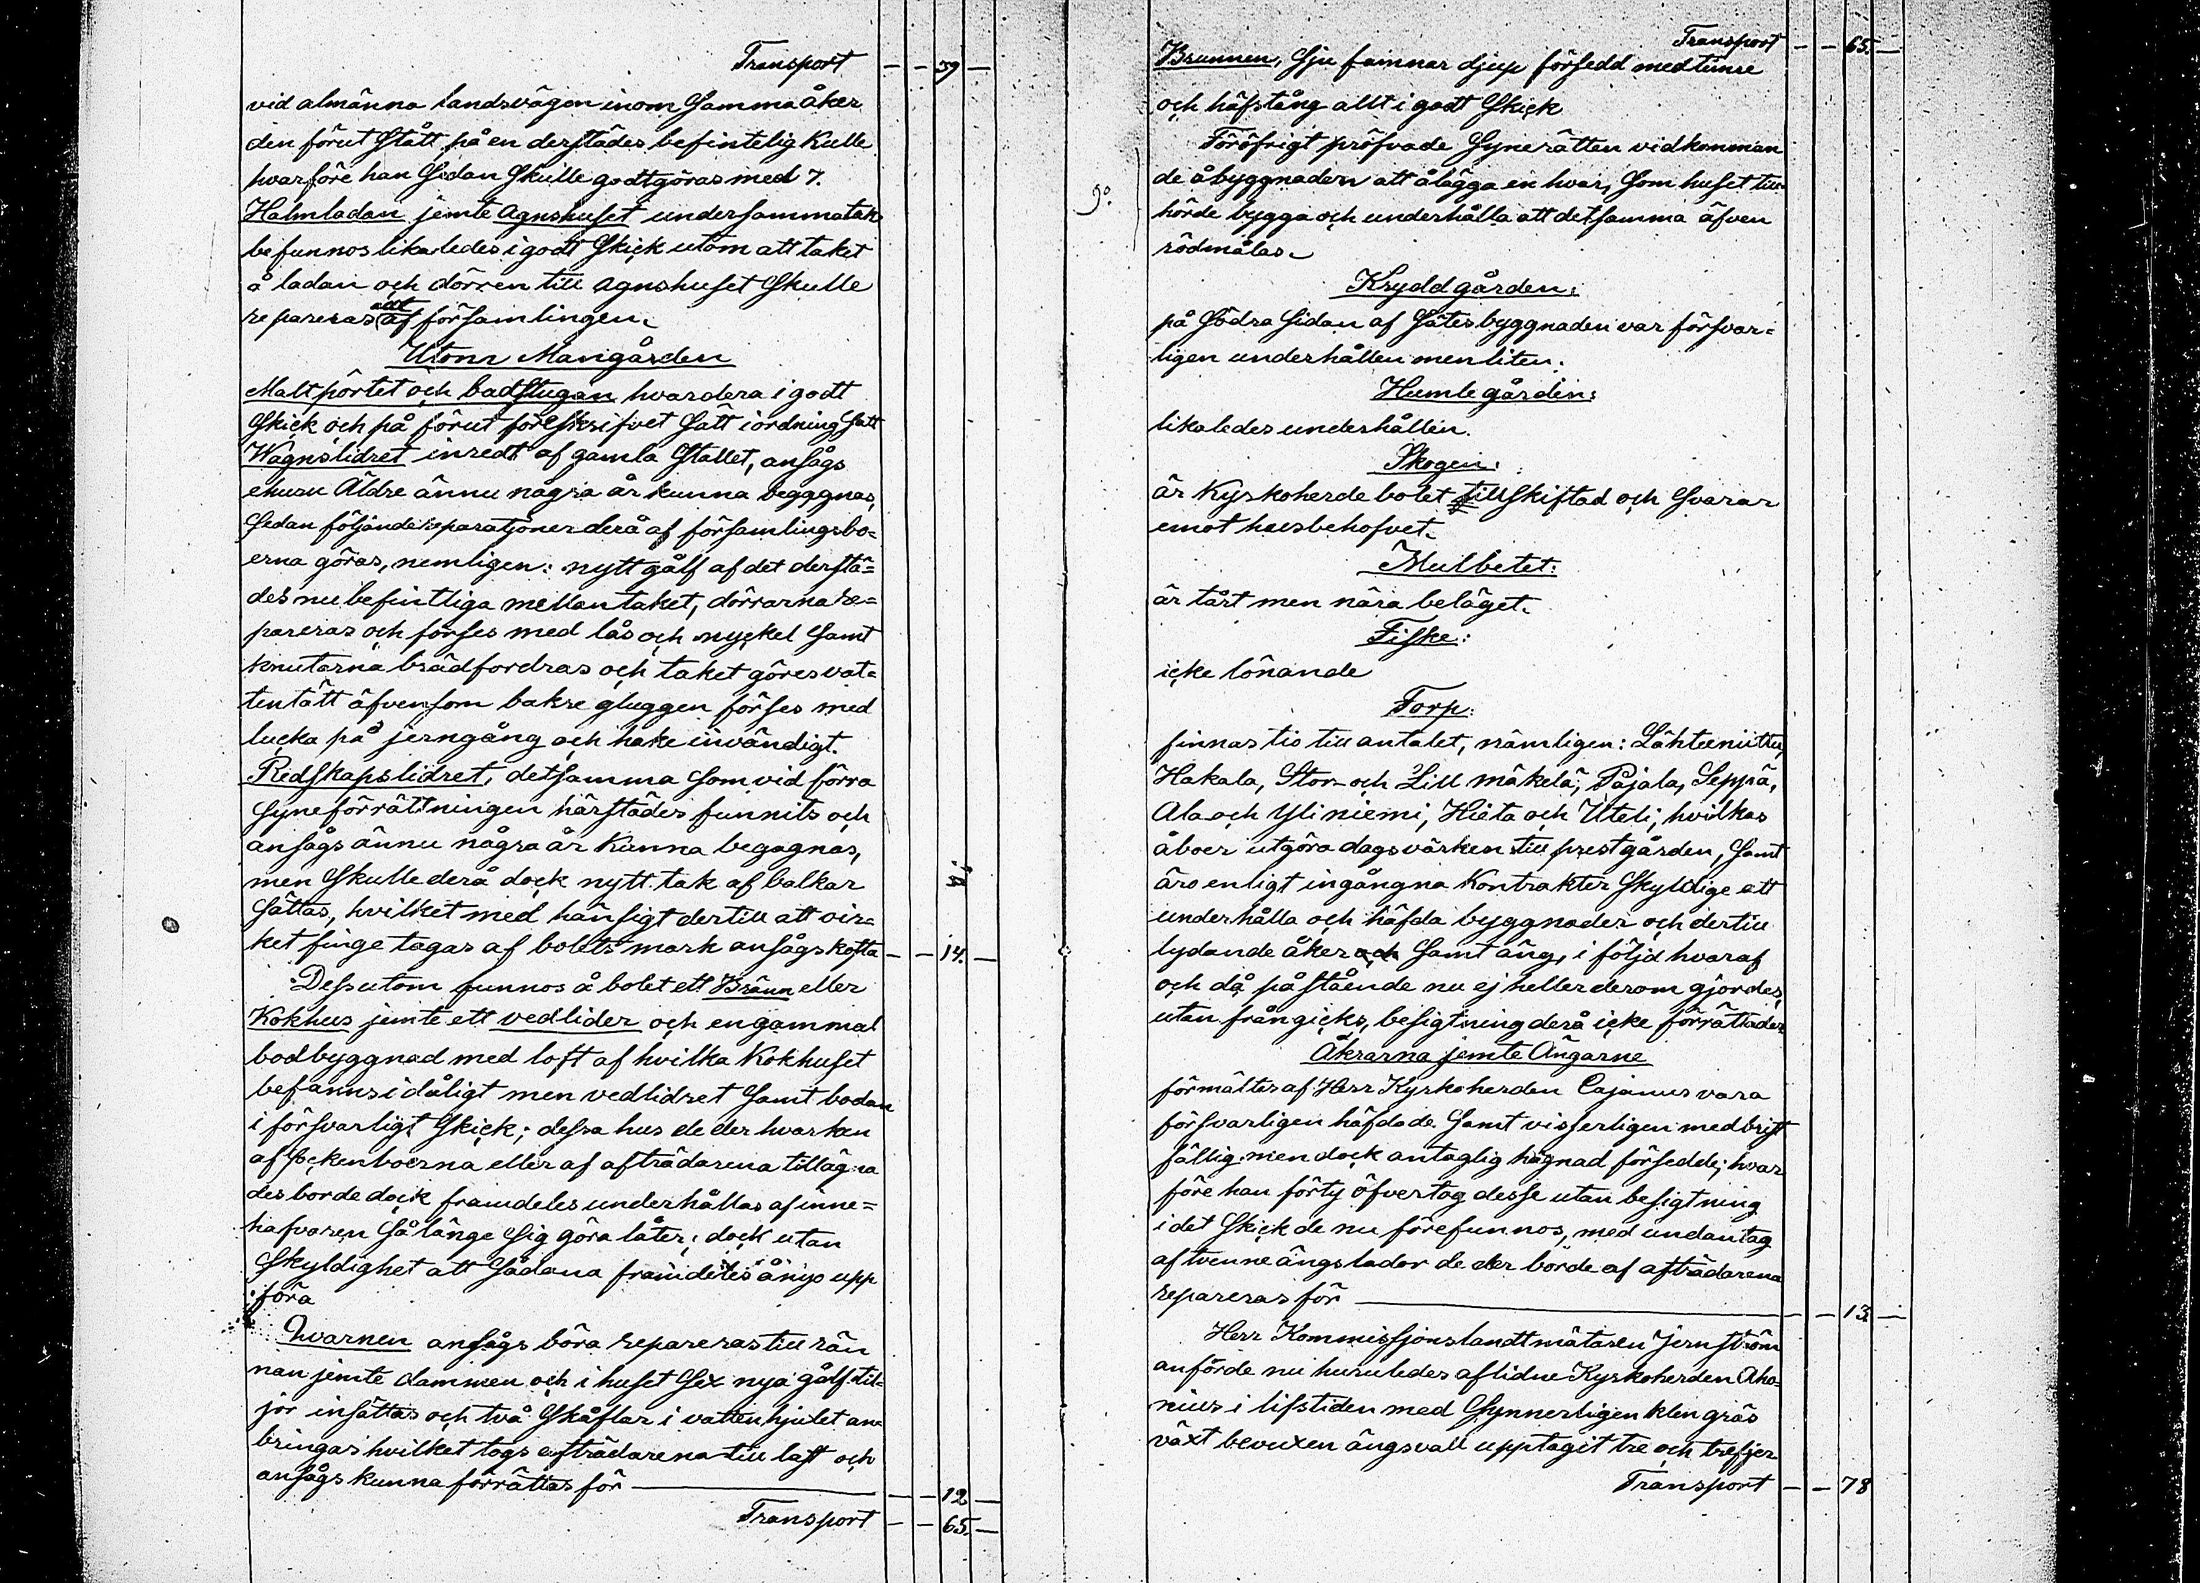 Transport – – 39 –
vid almänna landsvägen inom samma åker
den förut stått på en derstädes befintelig Kulle
hvarföre han sedan skulle godtgöras med 7.
Halmladan jemte agnshuset under samma tak
befunnos likaledes i godt skick utom att taket
å ladan och dörren till agnshuset skulle
repareras af församlingen.
Utom Mangården
Maltpörtet och badstugan hvardera i godt
skick och på förut föreskrifvet sätt i ordning satt
Wagnslidret inredt af gamla stallet, ansågs
ehuru Äldre ännu några år kunna begggnas,
sedan följande reparationer derå af församlingsbo=
erna göras, nemligen: nytt gålf af det derstä=
des nu befintliga mellantaket, dörrarna re=
pareras och förses med lås och nyckel samt
knutarna brädfordras och taket göres vat=
tentätt äfvensom bakre gluggen förses med
lucka på jerngång och hake invändigt.
Redskapslidret, detsamma som vid förra
syneförrättningen härstädes funnits och
ansågs ännu några år Kunna begagnas,
men skulle derå dock nytt tak af balkar
sättas, hvilket med hänsigt dertill att vir=
ket finge tagas af bolets mark ansågs kosta – – 14. –
Dessutom funnos å bolet ett Bränn eller
Kokhus jemte ett vedlider och en gammal
bodbyggnad med loft af hvilka Kokhuset
befanns i dåligt men vedlidret samt bodan
i försvarligt skick; dessa hus de der hvarken
af sockenboerna eller af afträdarena tillägna
des borde dock framdeles underhållas af inne=
hafvaren så länge sig göra låter; dock utan
skyldighet att sådana framdeles ånyo upp
föra
Qvarnen ansågs böra repareras till rän
nan jemte dammen och i huset sex nya gålftil=
jor insättas och två skåflar i vattenhjulet an=
bringas hvilket togs afträdarena till last och
ansågs kunna förrättas för – – 12 –
Transport – – 65. –
Transport – – 65. –
Brunnen, sju famnar djup försedd med timre
och häfstång allt i godt skick
9º
Föröfrigt pröfvade Synerätten vidkomman
de åbyggnaden att ålägga en hvar, som huset till
hörde bygga och underhålla att detsamma äfven
rödmålas.
Kryddgården:
på södra sidan af sätesbyggnaden var försvar=
ligen underhållen men liten.
Humlegården:
likaledes underhållen.
Skogen:
är Kyrkoherde bolet tillskiftad och svarar
emot husbehofvet.
Mulbetet:
är tårt men nära beläget.
Fiske:
icke lönande
Torp:
finnas tio till antalet, nämligen: Lähteeniittu,
Hakala, Stor- och Lill mäkelä, Pajala, Seppä,
Ala- och Yliniemi, Hieta och Uteli, hvilkas
åboer utgöra dagsvärken till prestgården, samt
äro enligt ingångna Kontrakter skyldige att
underhålla och häfda byggnader och dertill
lydande åker och samt äng, i följd hvaraf
och då påstående nu ej heller derom gjordes,
utan frångicks, besigtning derå icke förrättades.
Åkrarna jemte Ängarne
förmältes af Herr Kyrkoherden Cajanus vara
försvarligen häfdade samt visserligen med brist
fällig men dock antaglig hägnad försedde; hvar
före han förty öfvertog desse utan besigtning
i det skick de nu förefunnos, med undantag
af tvenne ängslador de der borde af afträdarena
repareras för – – 13. –
Herr Kommissionslandtmätaren Jernström
anförde nu huruledes aflidne Kyrkoherden Aho=
nius i lifstiden med synnerligen klen gräs
växt bevuxen ängsvall upptagit tre och trefjer
Transport – – 78